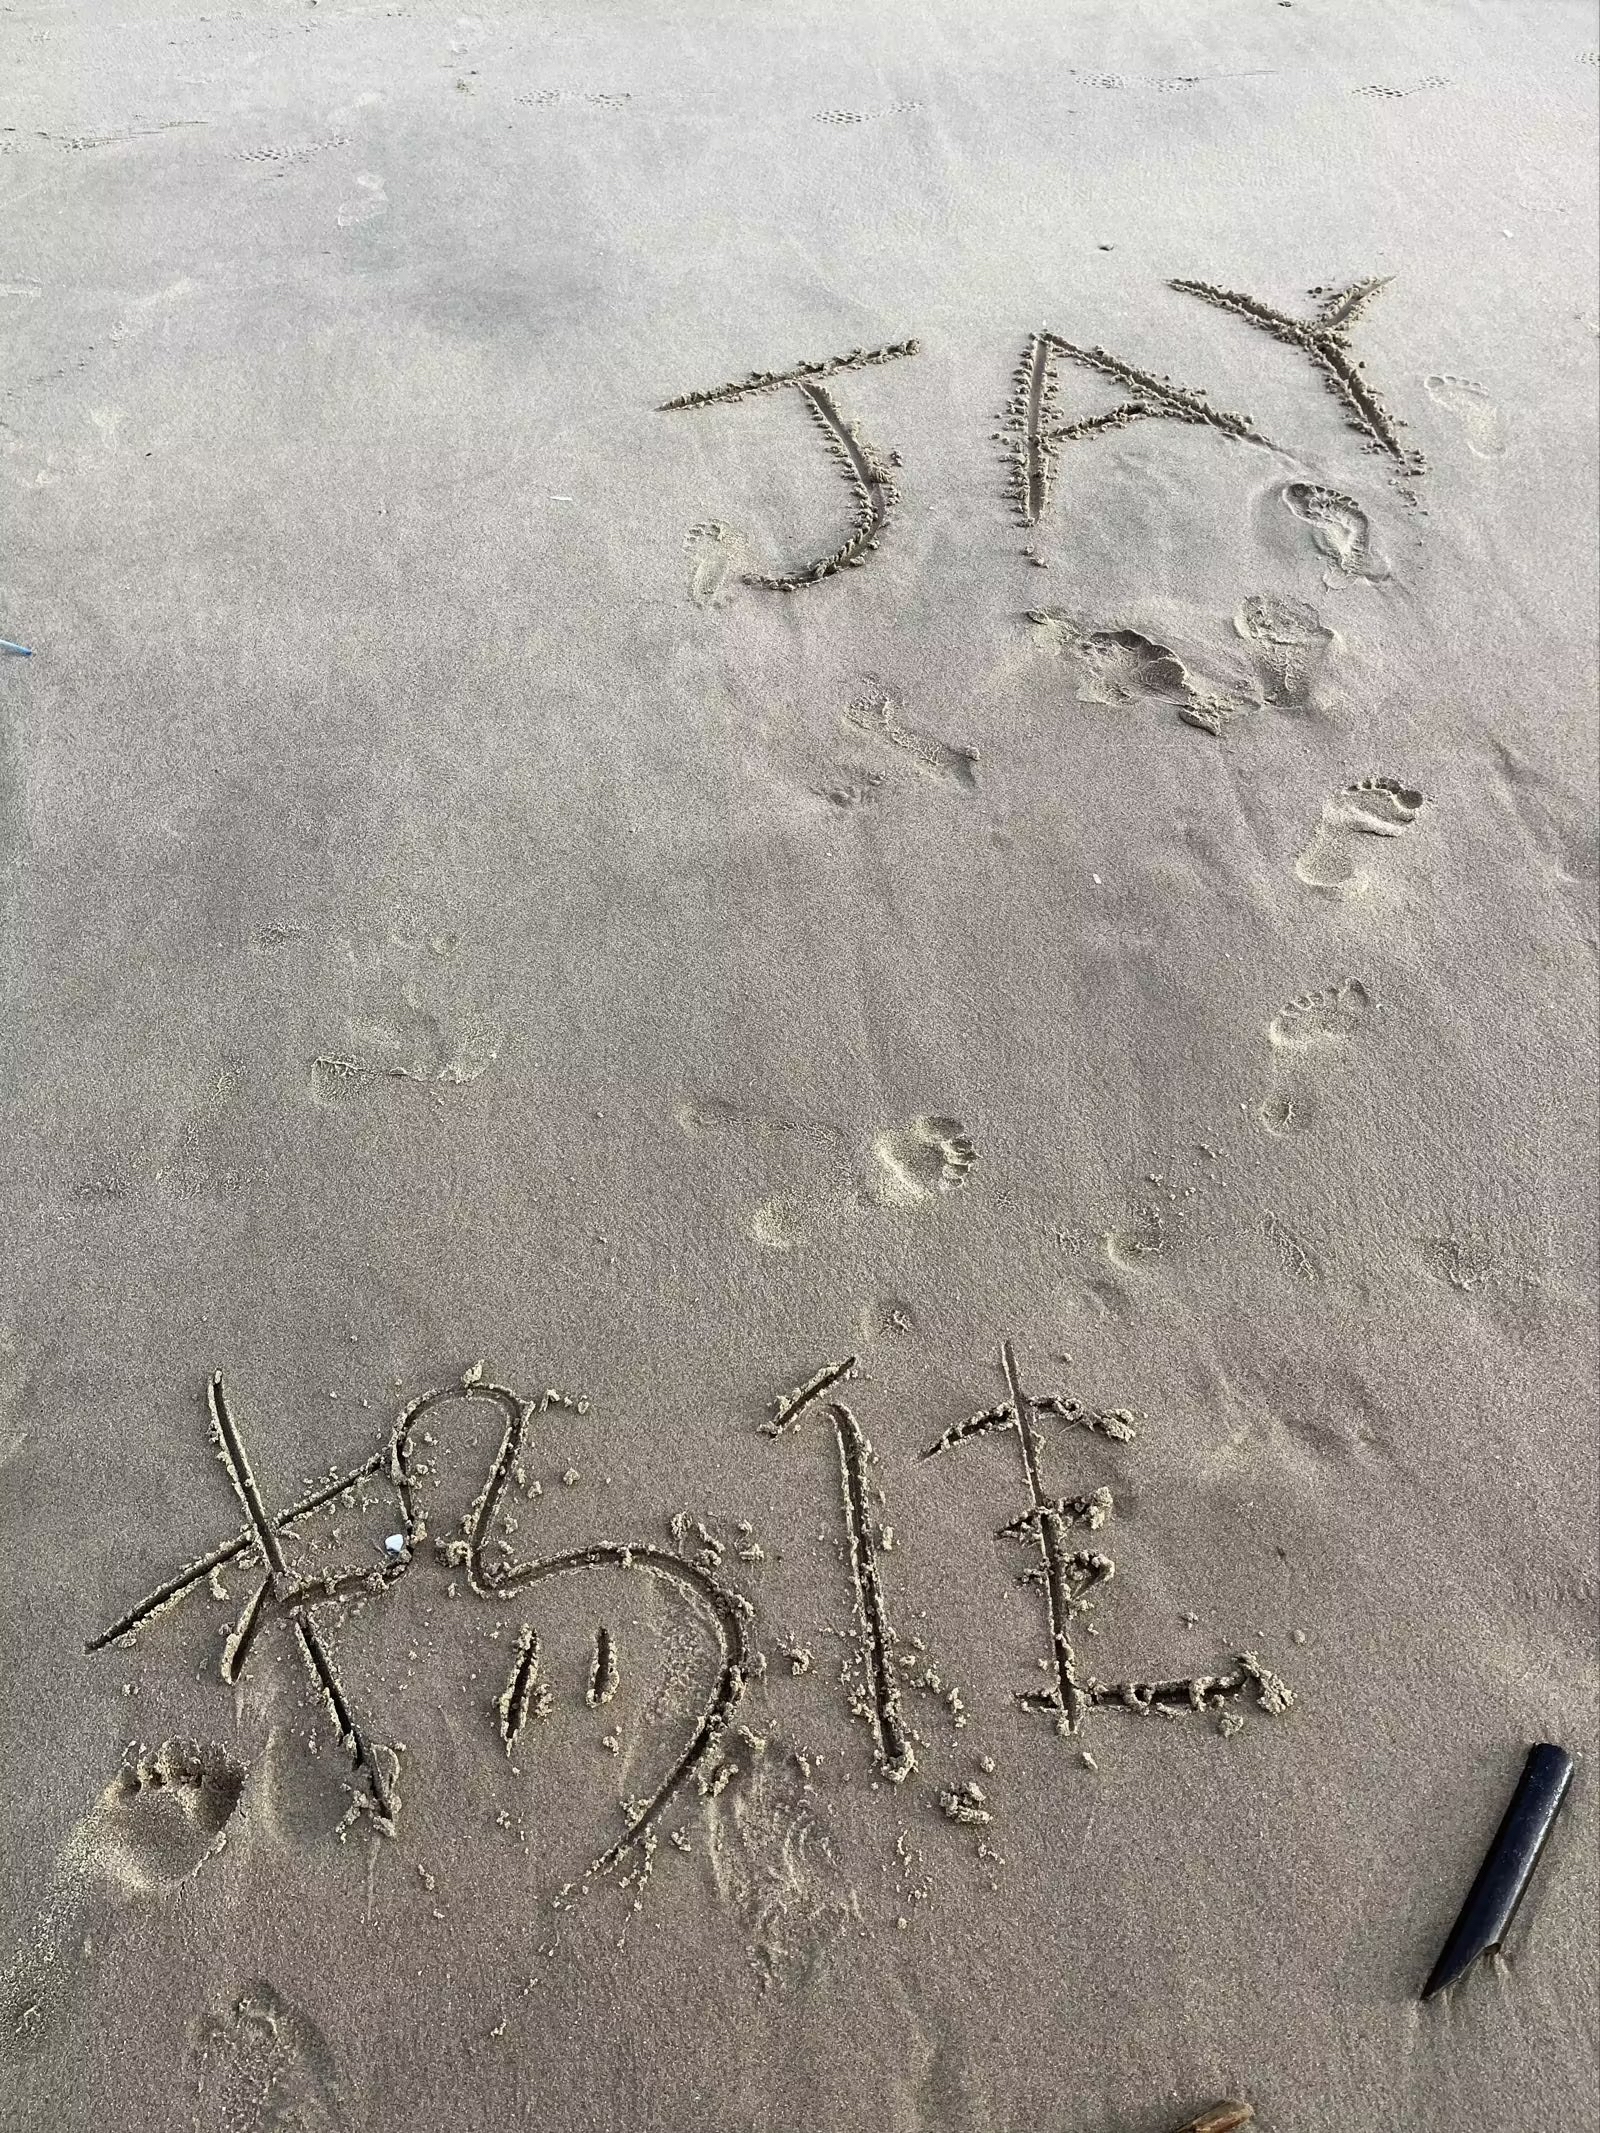 JAY
杨佳